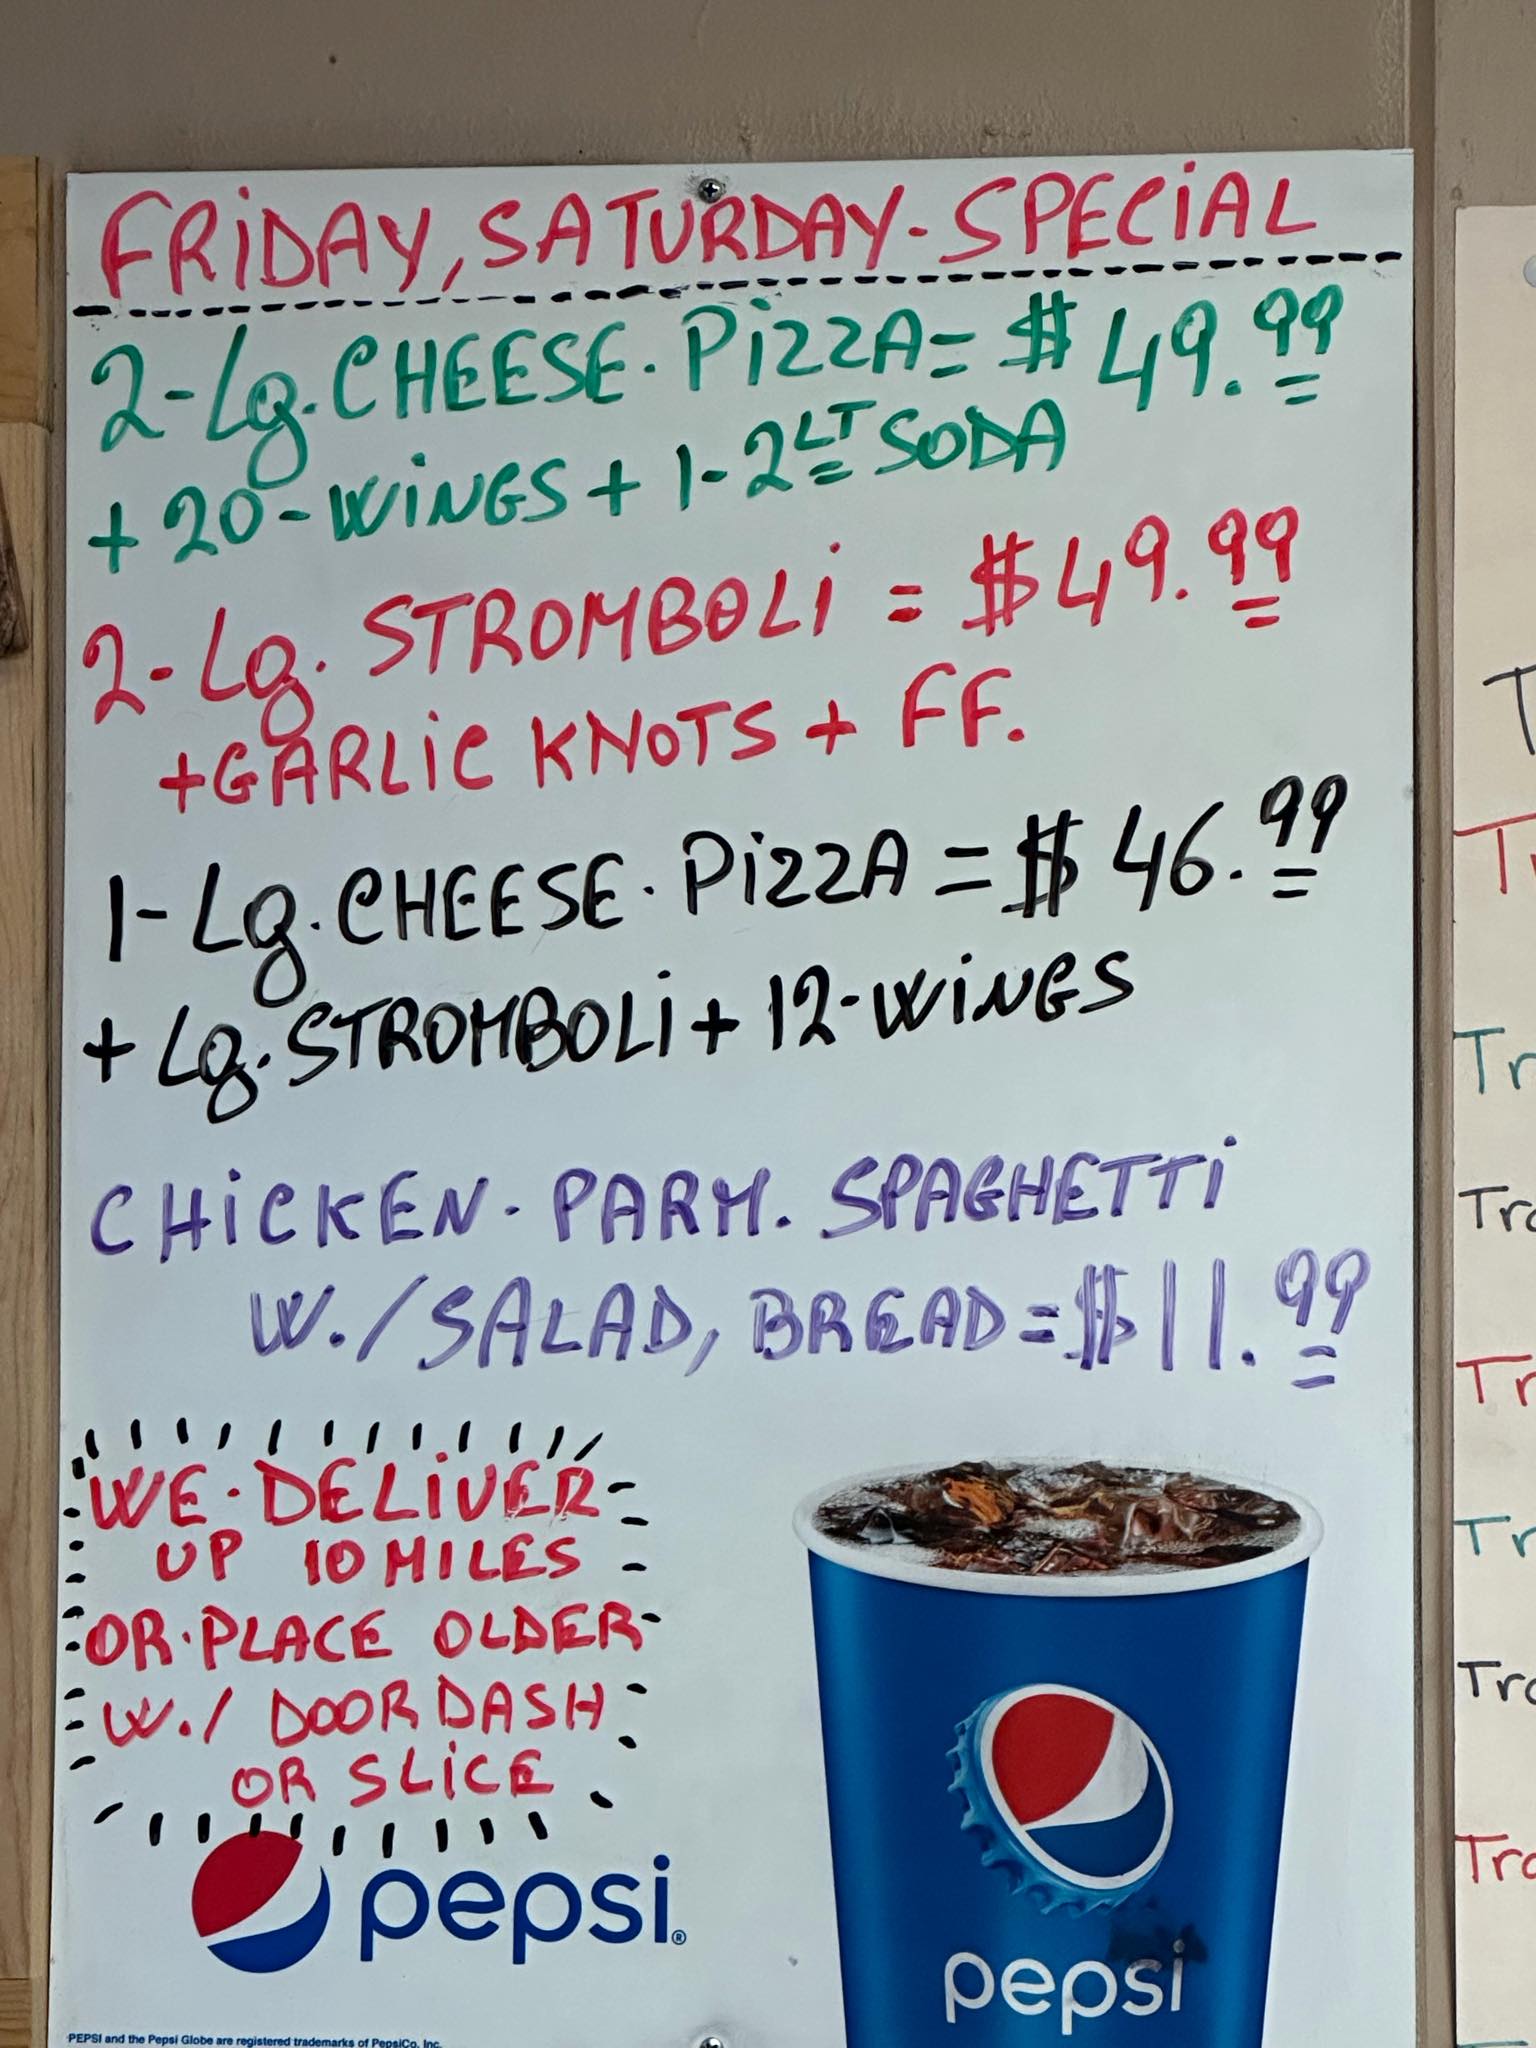 FRiDAY, SATURDAY-SPECiAL
2-Lg. CHEESE. PiZZA = $ 49.99
+ 20-WiNGS + 1-2LT SODA
2-Lg. STROMBOLi = $49.99
+GARLiC KNOTS + FF.
1-Lg. CHEESE. PiZZA = $ 46.99
+ Lg. STROMBOLi + 12-WiNGS
CHiCKEN. PARM. SPAGHETTi
W./SALAD, BREAD = $11.99
WE-DELiVER
UP 10 MILES
OR-PLACE OLDER
W./ DOORDASH
OR SLiCE
pepsi®
pepsi
PEPSI and the Pepsi Globe are registered trademarks of PepsiCo, Inc.
T
Tr
Tr
Tra
Tr
Tr
Tra
Tra